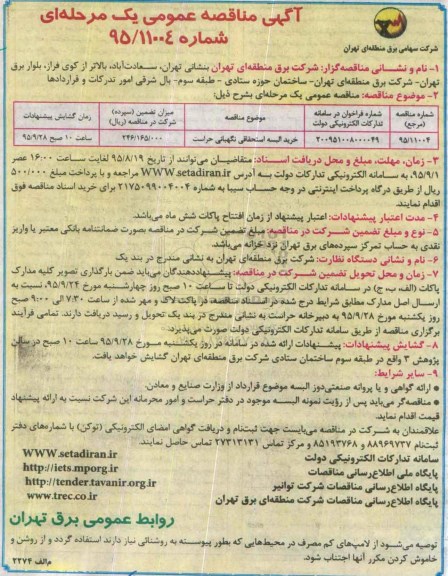 آگهی مناقصه عمومی یک مرحله‌ای
شماره ۹۵/۱۱۰۰۴
شرکت سهامی برق منطقه‌ای تهران
۱- نام و نشـانی مناقصه‌گزار: شرکت برق منطقه‌ای تهران بنشانی تهران، سـعادت‌آباد، بالاتر از کوی فراز، بلوار برق
تهران- شرکت برق منطقه‌ای تهران- ساختمان حوزه ستادی - طبقه سوم- بال شرقی امور تدرکات و قراردادها
۲- موضوع مناقصه: مناقصه عمومی یک مرحله‌ای بشرح ذیل:
شماره مناقصه (مرجع) شماره فراخوان در سامانه تدارکات الکترونیکی دولت موضوع مناقصه میزان تضمین (سپرده) شرکت در مناقصه (ریال) زمان گشایش پیشنهادات
۹۵/۱۱۰۰۴ ۲۰۰۹۵۱۰۰۸۰۰۰۰۴۹ خرید البسه استحفاظی نگهبانی حراست ۲۴۶/۱۶۵/۰۰۰ ساعت ۱۰ صبح ۹۵/۹/۲۸
۳- زمان، مهلت، مبلغ و محل دریافت اسـناد: متقاضیـان می‌توانند از تاریخ ۹۵/۸/۱۹ لغایت ساعت ۱۶:۰۰ عصر
۹۵/۹/۱، به سـامانه الکترونیکی تدارکات دولت بـه آدرس WWW.setadiran.ir مراجعه و با پرداخت مبلغ ۵۰۰/۰۰۰
ریال از طریق درگاه پرداخت اینترنتی در وجه حساب سیبا به شماره ۲۱۷۵۰۹۹۰۰۴۰۰۴ برای خرید اسناد مناقصه فوق
اقدام نمایند.
۴- مدت اعتبار پیشنهادات: اعتبار پیشنهاد از زمان افتتاح پاکات شش ماه می‌باشد.
۵- نوع و مبلغ تضمین شـرکت در مناقصه: مبلغ تضمین شـرکت در مناقصه بصورت ضمانتنامه بانکی معتبر یا واریز
نقدی به حساب تمرکز سپرده‌های برق تهران نزد خزانه می‌باشد.
۶- نام و نشانی دستگاه نظارت: شرکت برق منطقه‌ای تهران به نشانی مندرج در بند یک
۷- زمان و محل تحویل تضمین شـرکت در مناقصه: پیشنهاددهندگان می‌باید ضمن بارگذاری تصویر کلیه مدارک
پاکات (الف، ب، ج) در سـامانه تدارکات الکترونیکی دولت تا ساعت ۱۰ صبح روز چهارشنبه مورخ ۹۵/۹/۲۴، نسبت به
ارسـال اصل مدارک مطابق شرایط درج شده در اسـناد مناقصه، در پاکت لاک و مهر شده از ساعت ۷:۳۰ الی ۹:۰۰ صبح
روز یکشنبه مورخ ۹۵/۹/۲۸ به دبیرخانه حراست به نشانی مندرج در بند یک تحویل و رسید دریافت دارند. تمامی فرآیند
برگزاری مناقصه از طریق سامانه تدارکات الکترونیکی دولت صورت می‌پذیرد.
۸- گشایش پیشنهادات: پیشنهادات ارائه شـده در سامانه در روز یکشـنبه مـورخ ۹۵/۹/۲۸ ساعت ۱۰ صبح در سالن
پژوهش ۳ واقع در طبقه سوم ساختمان ستادی شرکت برق منطقه‌ای تهران گشایش خواهد یافت.
۹- سایر شرایط:
● ارائه گواهی و یا پروانه صنعتی‌دوز البسه موضوع قرارداد از وزارت صنایع و معادن.
● مناقصه‌گر می‌باید پس از رؤیت نمونه البسـه موجود در دفتر حراست و امور محرمانه این شرکت نسبت به ارائه پیشنهاد
قیمت اقدام نماید.
علاقمندان به شـرکت در مناقصه می‌بایست جهت ثبت‌نام و دریافت گواهی امضای الکترونیکی (توکن) با شماره‌های دفتر
ثبت‌نام ۸۸۹۶۹۷۳۷ و ۸۵۱۹۳۷۶۸ و مرکز تماس ۲۷۳۱۳۱۳۱ تماس حاصل نمایند.
سامانه تدارکات الکترونیکی دولت WWW.setadiran.ir
پایگاه ملی اطلاع‌رسانی مناقصات http://iets.mporg.ir
پایگاه اطلاع‌رسانی مناقصات شرکت توانیر http://tender.tavanir.org.ir
پایگاه اطلاع‌رسانی مناقصات شرکت منطقه‌ای برق تهران www.trec.co.ir
روابط عمومی برق تهران
توصیه می‌شـود از لامپ‌های کم مصرف در محیط‌هایی که بطور پیوسـته به روشنائی نیاز دارند استفاده گردد و از روشن و
خاموش کردن مکرر آنها اجتناب شود.
م‌الف ۲۲۷۴